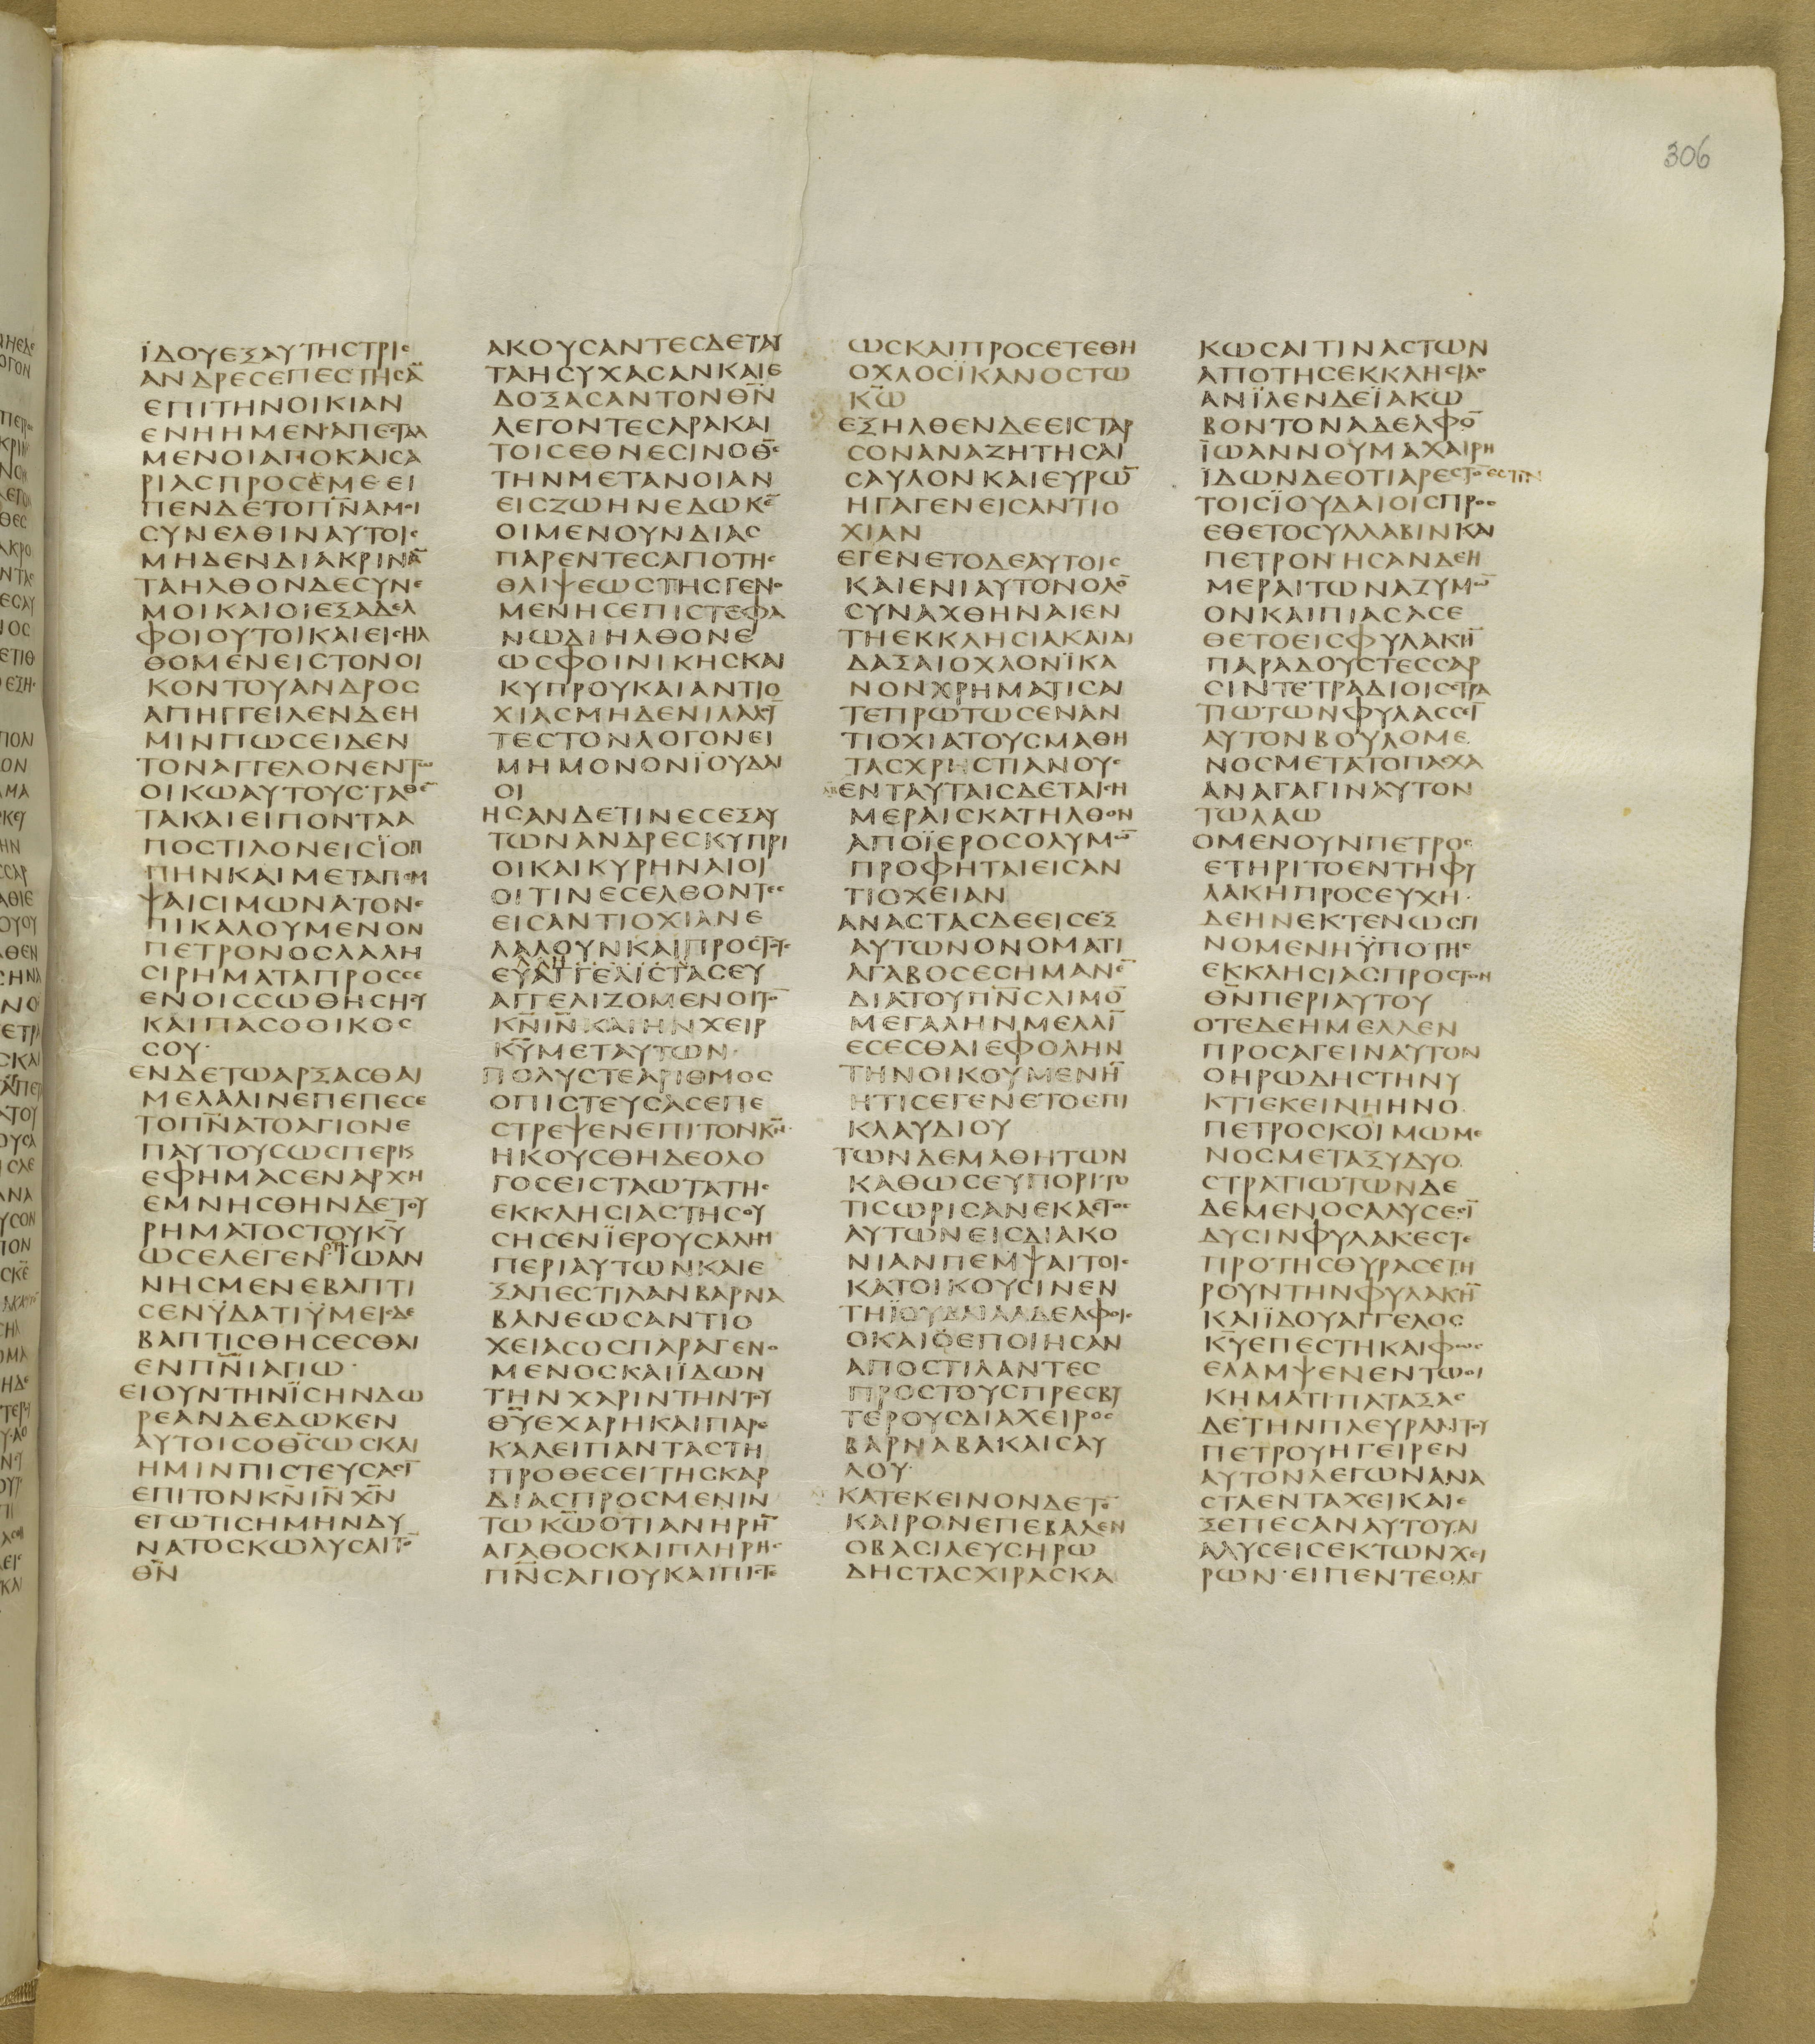 306
ΪΔΟΥΕΞΑΥΤΗϹΤΡΙϹ
ΑΝΔΡΕϹΕΠΕϹΤΗϹΑ̅
ΕΠΙΤΗΝΟΙΚΙΑΝ
ΕΝΗΗΜΕΝ·ΑΠΕϹΤΑΛ
ΜΕΝΟΙΑΠΟΚΑΙϹΑ
ΡΙΑϹΠΡΟϹΕΜΕ·ΕΙ
ΠΕΝΔΕΤΟΠ̅Ν̅ΑΜΟΙ
ϹΥΝΕΛΘΙΝΑΥΤΟΙϹ
ΜΗΔΕΝΔΙΑΚΡΙΝΑ̅
ΤΑΗΛΘΟΝΔΕϹΥΝΕ
ΜΟΙΚΑΙΟΙΕΞΑΔΕΛ
ΦΟΙΟΥΤΟΙΚΑΙΕΙϹΗΛ
ΘΟΜΕΝΕΙϹΤΟΝΟΙ
ΚΟΝΤΟΥΑΝΔΡΟϹ
ΑΠΗΓΓΕΙΛΕΝΔΕΗ
ΜΙΝΠΩϹΕΙΔΕΝ
ΤΟΝΑΓΓΕΛΟΝΕΝΤΩ
ΟΙΚΩΑΥΤΟΥϹΤΑΘΕ̅
ΤΑΚΑΙΕΙΠΟΝΤΑΑ
ΠΟϹΤΙΛΟΝΕΙϹΪΟΠ
ΠΗΝΚΑΙΜΕΤΑΠΕΜ
ΨΑΙϹΙΜΩΝΑΤΟΝΕ
ΠΙΚΑΛΟΥΜΕΝΟΝ
ΠΕΤΡΟΝΟϹΛΑΛΗ
ϹΙΡΗΜΑΤΑΠΡΟϹϹΕ
ΕΝΟΙϹϹΩΘΗϹΗϹΥ
ΚΑΙΠΑϹΟΟΙΚΟϹ
ϹΟΥ·
ΕΝΔΕΤΩΑΡΞΑϹΘΑΙ
ΜΕΛΑΛΙΝΕΠΕΠΕϹΕ
ΤΟΠ̅Ν̅ΑΤΟΑΓΙΟΝΕ
ΠΑΥΤΟΥϹΩϹΠΕΡΚ
ΕΦΗΜΑϹΕΝΑΡΧΗ
ΕΜΝΗϹΘΗΝΔΕΤΟΥ
ΡΗΜΑΤΟϹΤΟΥΚ̅Υ̅
ΩϹΕΛΕΓΕΝΟΤΙΪΩΑΝ
ΝΗϹΜΕΝΕΒΑΠΤΙ
ϹΕΝΫΔΑΤΙΫΜΕΙϹΔΕ
ΒΑΠΤΙϹΘΗϹΕϹΘΑΙ
ΕΝΠ̅Ν̅ΙΑΓΙΩ·
ΕΙΟΥΝΤΗΝΪϹΗΝΔΩ
ΡΕΑΝΔΕΔΩΚΕΝ
ΑΥΤΟΙϹΟΘ̅Ϲ̅ΩϹΚΑΙ
ΗΜΙΝΠΙϹΤΕΥϹΑϹΙ̅
ΕΠΙΤΟΝΚ̅Ν̅Ι̅Ν̅Χ̅Ν̅
ΕΓΩΤΙϹΗΜΗΝΔΥ
ΝΑΤΟϹΚΩΛΥϹΑΙΤΟ̅
Θ̅Ν̅
ΑΚΟΥϹΑΝΤΕϹΔΕΤΑΥ
ΤΑΗϹΥΧΑϹΑΝΚΑΙΕ
ΔΟΞΑϹΑΝΤΟΝΘ̅Ν̅
ΛΕΓΟΝΤΕϹΑΡΑΚΑΙ
ΤΟΙϹΕΘΝΕϹΙΝΟΘ̅Ϲ̅
ΤΗΝΜΕΤΑΝΟΙΑΝ
ΕΙϹΖΩΗΝΕΔΩΚΕ̅
ΟΙΜΕΝΟΥΝΔΙΑϹ
ΠΑΡΕΝΤΕϹΑΠΟΤΗϹ
ΘΛΙΨΕΩϹΤΗϹΓΕΝΟ
ΜΕΝΗϹΕΠΙϹΤΕΦΑ
ΝΩΔΙΗΛΘΟΝΕ
ΩϹΦΟΙΝΙΚΗϹΚΑΙ
ΚΥΠΡΟΥΚΑΙΑΝΤΙΟ
ΧΙΑϹΜΗΔΕΝΙΛΑΛΟΥ̅
ΤΕϹΤΟΝΛΟΓΟΝΕΙ
ΜΗΜΟΝΟΝΪΟΥΔΑΙ
ΟΙ
ΗϹΑΝΔΕΤΙΝΕϹΕΞΑΥ
ΤΩΝΑΝΔΡΕϹΚΥΠΡΙ
ΟΙΚΑΙΚΥΡΗΝΑΙΟΙ
ΟΙΤΙΝΕϹΕΛΘΟΝΤΕϹ
ΕΙϹΑΝΤΙΟΧΙΑΝΕ
ΛΑΛΟΥΝΚΑΙΠΡΟϹΤΟΥϹ
ΕΥΑΓΓΕΛΙϹΤΑϹΕΥ
ΑΓΓΕΛΙΖΟΜΕΝΟΙΤΟ̅
Κ̅Ν̅Ι̅Ν̅ΚΑΙΗΝΧΕΙΡ
Κ̅Υ̅ΜΕΤΑΥΤΩΝ·
ΠΟΛΥϹΤΕΑΡΙΘΜΟϹ
ΟΠΙϹΤΕΥϹΑϹΕΠΕ
ϹΤΡΕΨΕΝΕΠΙΤΟΝΚ̅Ν̅·
ΗΚΟΥϹΘΗΔΕΟΛΟ
ΓΟϹΕΙϹΤΑΩΤΑΤΗϹ
ΕΚΚΛΗϹΙΑϹΤΗϹΟΥ
ϹΗϹΕΝΪΕΡΟΥϹΑΛΗΜ
ΠΕΡΙΑΥΤΩΝΚΑΙΕ
ΞΑΠΕϹΤΙΛΑΝΒΑΡΝΑ
ΒΑΝΕΩϹΑΝΤΙΟ
ΧΕΙΑϹΟϹΠΑΡΑΓΕΝΟ
ΜΕΝΟϹΚΑΙΪΔΩΝ
ΤΗΝΧΑΡΙΝΤΗΝΤΟΥ
Θ̅Υ̅ΕΧΑΡΗΚΑΙΠΑΡΕ
ΚΑΛΕΙΠΑΝΤΑϹΤΗ
ΠΡΟΘΕϹΕΙΤΗϹΚΑΡ
ΔΙΑϹΠΡΟϹΜΕΝΙΝ
ΤΩΚ̅Ω̅ΟΤΙΑΝΗΡΗ̅
ΑΓΑΘΟϹΚΑΙΠΛΗΡΗϹ
Π̅Ν̅Ϲ̅ΑΓΙΟΥΚΑΙΠΙϹΤΕ
ΩϹΚΑΙΠΡΟϹΕΤΕΘΗ
ΟΧΛΟϹΪΚΑΝΟϹΤΩ
Κ̅Ω̅
ΕΞΗΛΘΕΝΔΕΕΙϹΤΑΡ
ϹΟΝΑΝΑΖΗΤΗϹΑΙ
ϹΑΥΛΟΝΚΑΙΕΥΡΩ̅
ΗΓΑΓΕΝΕΙϹΑΝΤΙΟ
ΧΙΑΝ
ΕΓΕΝΕΤΟΔΕΑΥΤΟΙϹ
ΚΑΙΕΝΙΑΥΤΟΝΟΛΟ̅
ϹΥΝΑΧΘΗΝΑΙΕΝ
ΤΗΕΚΚΛΗϹΙΑΚΑΙΔΙ
ΔΑΞΑΙΟΧΛΟΝΪΚΑ
ΝΟΝΧΡΗΜΑΤΙϹΑΙ
ΤΕΠΡΩΤΩϹΕΝΑΝ
ΤΙΟΧΙΑΤΟΥϹΜΑΘΗ
ΤΑϹΧΡΗϹΤΙΑΝΟΥϹ
ΕΝΤΑΥΤΑΙϹΔΕΤΑΙϹΗ
ΜΕΡΑΙϹΚΑΤΗΛΘΟΝ
ΑΠΟΪΕΡΟϹΟΛΥΜΩ̅
ΠΡΟΦΗΤΑΙΕΙϹΑΝ
ΤΙΟΧΕΙΑΝ
ΑΝΑϹΤΑϹΔΕΕΙϹΕΞ
ΑΥΤΩΝΟΝΟΜΑΤΙ
ΑΓΑΒΟϹΕϹΗΜΑΝΕ̅
ΔΙΑΤΟΥΠ̅Ν̅Ϲ̅ΛΙΜΟ̅
ΜΕΓΑΛΗΝΜΕΛΛΙ̅
ΕϹΕϹΘΑΙΕΦΟΛΗΝ
ΤΗΝΟΙΚΟΥΜΕΝΗ̅
ΗΤΙϹΕΓΕΝΕΤΟΕΠΙ
ΚΛΑΥΔΙΟΥ
ΤΩΝΔΕΜΑΘΗΤΩΝ
ΚΑΘΩϹΕΥΠΟΡΙΤΟ
ΤΙϹΩΡΙϹΑΝΕΚΑϹΤΟϹ
ΑΥΤΩΝΕΙϹΔΙΑΚΟ
ΝΙΑΝΠΕΜΨΑΙΤΟΙϹ
ΚΑΤΟΙΚΟΥϹΙΝΕΝ
ΤΗΪΟΥΔΑΙΑΑΔΕΛΦΟΙϹ
ΟΚΑΙΕΠΟΙΗϹΑΝ
ΑΠΟϹΤΙΛΑΝΤΕϹ
ΠΡΟϹΤΟΥϹΠΡΕϹΒΥ
ΤΕΡΟΥϹΔΙΑΧΕΙΡΟϹ
ΒΑΡΝΑΒΑΚΑΙϹΑΥ
ΛΟΥ·
ΚΑΤΕΚΕΙΝΟΝΔΕΤΟ̅
ΚΑΙΡΟΝΕΠΕΒΑΛΕΝ
ΟΒΑϹΙΛΕΥϹΗΡΩ
ΔΗϹΤΑϹΧΙΡΑϹΚΑ
ΚΩϹΑΙΤΙΝΑϹΤΩΝ
ΑΠΟΤΗϹΕΚΚΛΗϹΙΑϹ
ΑΝΪΛΕΝΔΕΪΑΚΩ
ΒΟΝΤΟΝΑΔΕΛΦΟ̅
ΪΩΑΝΝΟΥΜΑΧΑΙΡΗ
ΪΔΩΝΔΕΟΤΙΑΡΕϹΤΟ̅ΕϹΤΙΝ
ΤΟΙϹΪΟΥΔΑΙΟΙϹΠΡΟϹ
ΕΘΕΤΟϹΥΛΛΑΒΙΝΚΑΙ
ΠΕΤΡΟΝ·ΗϹΑΝΔΕΗ
ΜΕΡΑΙΤΩΝΑΖΥΜΩ̅
ΟΝΚΑΙΠΙΑϹΑϹΕ
ΘΕΤΟΕΙϹΦΥΛΑΚΗ̅
ΠΑΡΑΔΟΥϹΤΕϹϹΑΡ
ϹΙΝΤΕΤΡΑΔΙΟΙϹϹΤΡΑ
ΤΙΩΤΩΝΦΥΛΑϹϹΕΙ̅
ΑΥΤΟΝΒΟΥΛΟΜΕ
ΝΟϹΜΕΤΑΤΟΠΑϹΧΑ
ΑΝΑΓΑΓΙΝΑΥΤΟΝ
ΤΩΛΑΩ
ΟΜΕΝΟΥΝΠΕΤΡΟϹ
ΕΤΗΡΙΤΟΕΝΤΗΦΥ
ΛΑΚΗΠΡΟϹΕΥΧΗ·
ΔΕΗΝΕΚΤΕΝΩϹΓΙ
ΝΟΜΕΝΗΫΠΟΤΗϹ
ΕΚΚΛΗϹΙΑϹΠΡΟϹΤΟΝ
Θ̅Ν̅ΠΕΡΙΑΥΤΟΥ
ΟΤΕΔΕΗΜΕΛΛΕΝ
ΠΡΟϹΑΓΕΙΝΑΥΤΟΝ
ΟΗΡΩΔΗϹΤΗΝΥ
ΚΤΙΕΚΕΙΝΗΗΝΟ
ΠΕΤΡΟϹΚΟΙΜΩΜΕ
ΝΟϹΜΕΤΑΞΥΔΥΟ
ϹΤΡΑΤΙΩΤΩΝΔΕ
ΔΕΜΕΝΟϹΑΛΥϹΕϹΙ̅
ΔΥϹΙΝΦΥΛΑΚΕϹΤΕ
ΠΡΟΤΗϹΘΥΡΑϹΕΤΗ
ΡΟΥΝΤΗΝΦΥΛΑΚΗ̅
ΚΑΙΪΔΟΥΑΓΓΕΛΟϹ
Κ̅Υ̅ΕΠΕϹΤΗΚΑΙΦΩϹ
ΕΛΑΜΨΕΝΕΝΤΩΟΙ
ΚΗΜΑΤΙ·ΠΑΤΑΞΑϹ
ΔΕΤΗΝΠΛΕΥΡΑΝΤΟΥ
ΠΕΤΡΟΥΗΓΕΙΡΕΝ
ΑΥΤΟΝΛΕΓΩΝΑΝΑ
ϹΤΑΕΝΤΑΧΕΙΚΑΙΕ
ΞΕΠΕϹΑΝΑΥΤΟΥΑΙ
ΑΛΥϹΕΙϹΕΚΤΩΝΧΕΙ
ΡΩΝ·ΕΙΠΕΝΤΕΟΑΓ